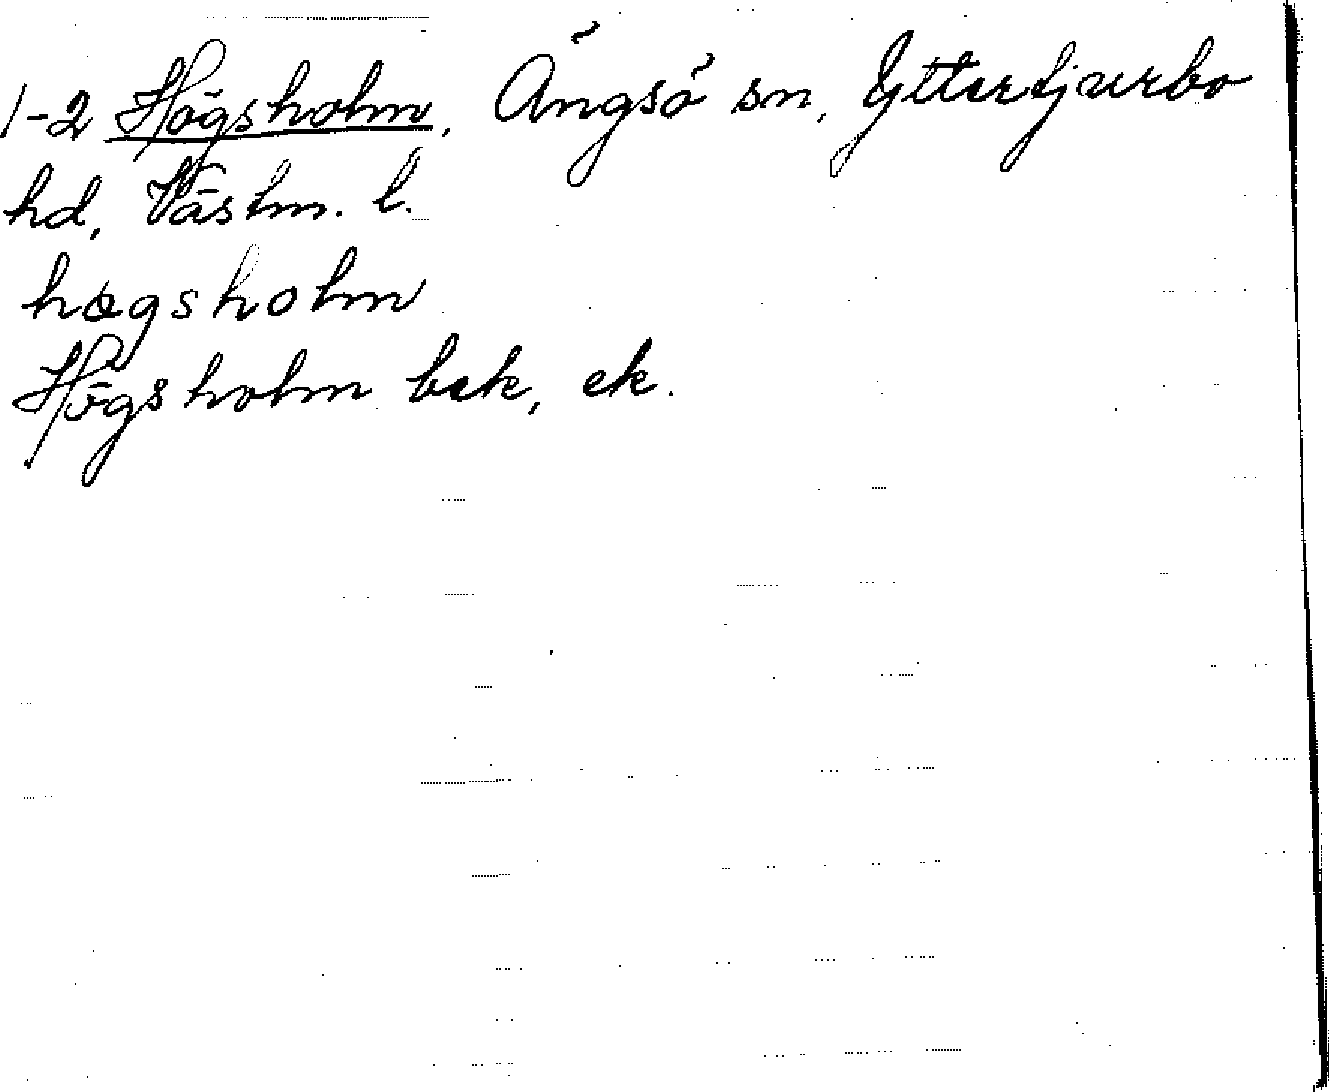 1-2 Högsholm, Ängsö sn, Yttertjurbo
hd, Västm. l.
høgsholm
Högsholm bek, ek.